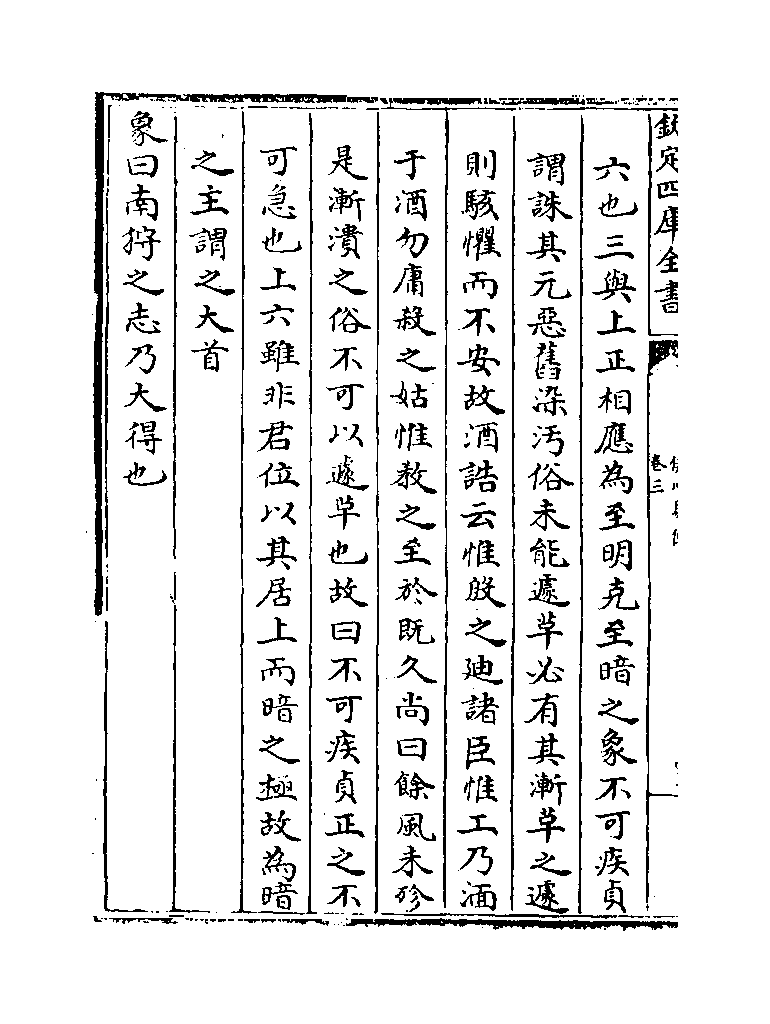 欽定四庫全書
卷三
六也三與上正相應為至明克至暗之象不可疾貞
謂誅其元惡舊染汚俗未能遽革必有其漸革之遽
則駭懼而不安故酒誥云惟殷之廸諸臣惟工乃湎
于酒勿庸殺之姑惟敎之至於既久尚曰餘風未殄
是漸漬之俗不可以遽革也故曰不可疾貞正之不
可急也上六雖非君位以其居上而暗之極故為暗
之主謂之大首
象曰南狩之志乃大得也